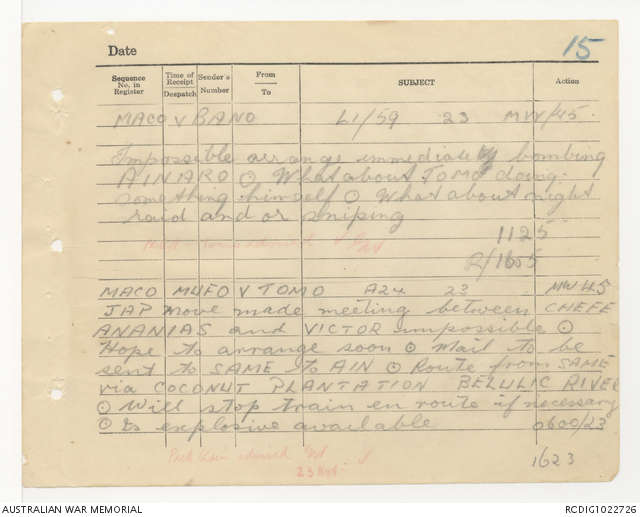 Date
15
Sequence No. in Register
Time of Receipt
Despatch
Sender's Number
From
To
SUBJECT
Action
MACO V BANO L1/59 23 MW/45.
Impossible arrange immediately bombing
AINARO ⊙ What about TOMO doing
something himself ⊙ What about night
raid and or sniping
1125
R/1605
MACO MUFO V TOMO A24 23 MW45
JAP move made meeting between CHEFE
ANANIAS and VICTOR impossible ⊙
Hope to arrange soon ⊙ Mail to be
sent to SAME to AIN ⊙ Route from SAME
via COCONUT PLANTATION BELULIC RIVER
⊙ Will stop train en route if necessary
⊙ Is explosive available 0600/23
23 Nov
1623
AUSTRALIAN WAR MEMORIAL
RCDIG1022726